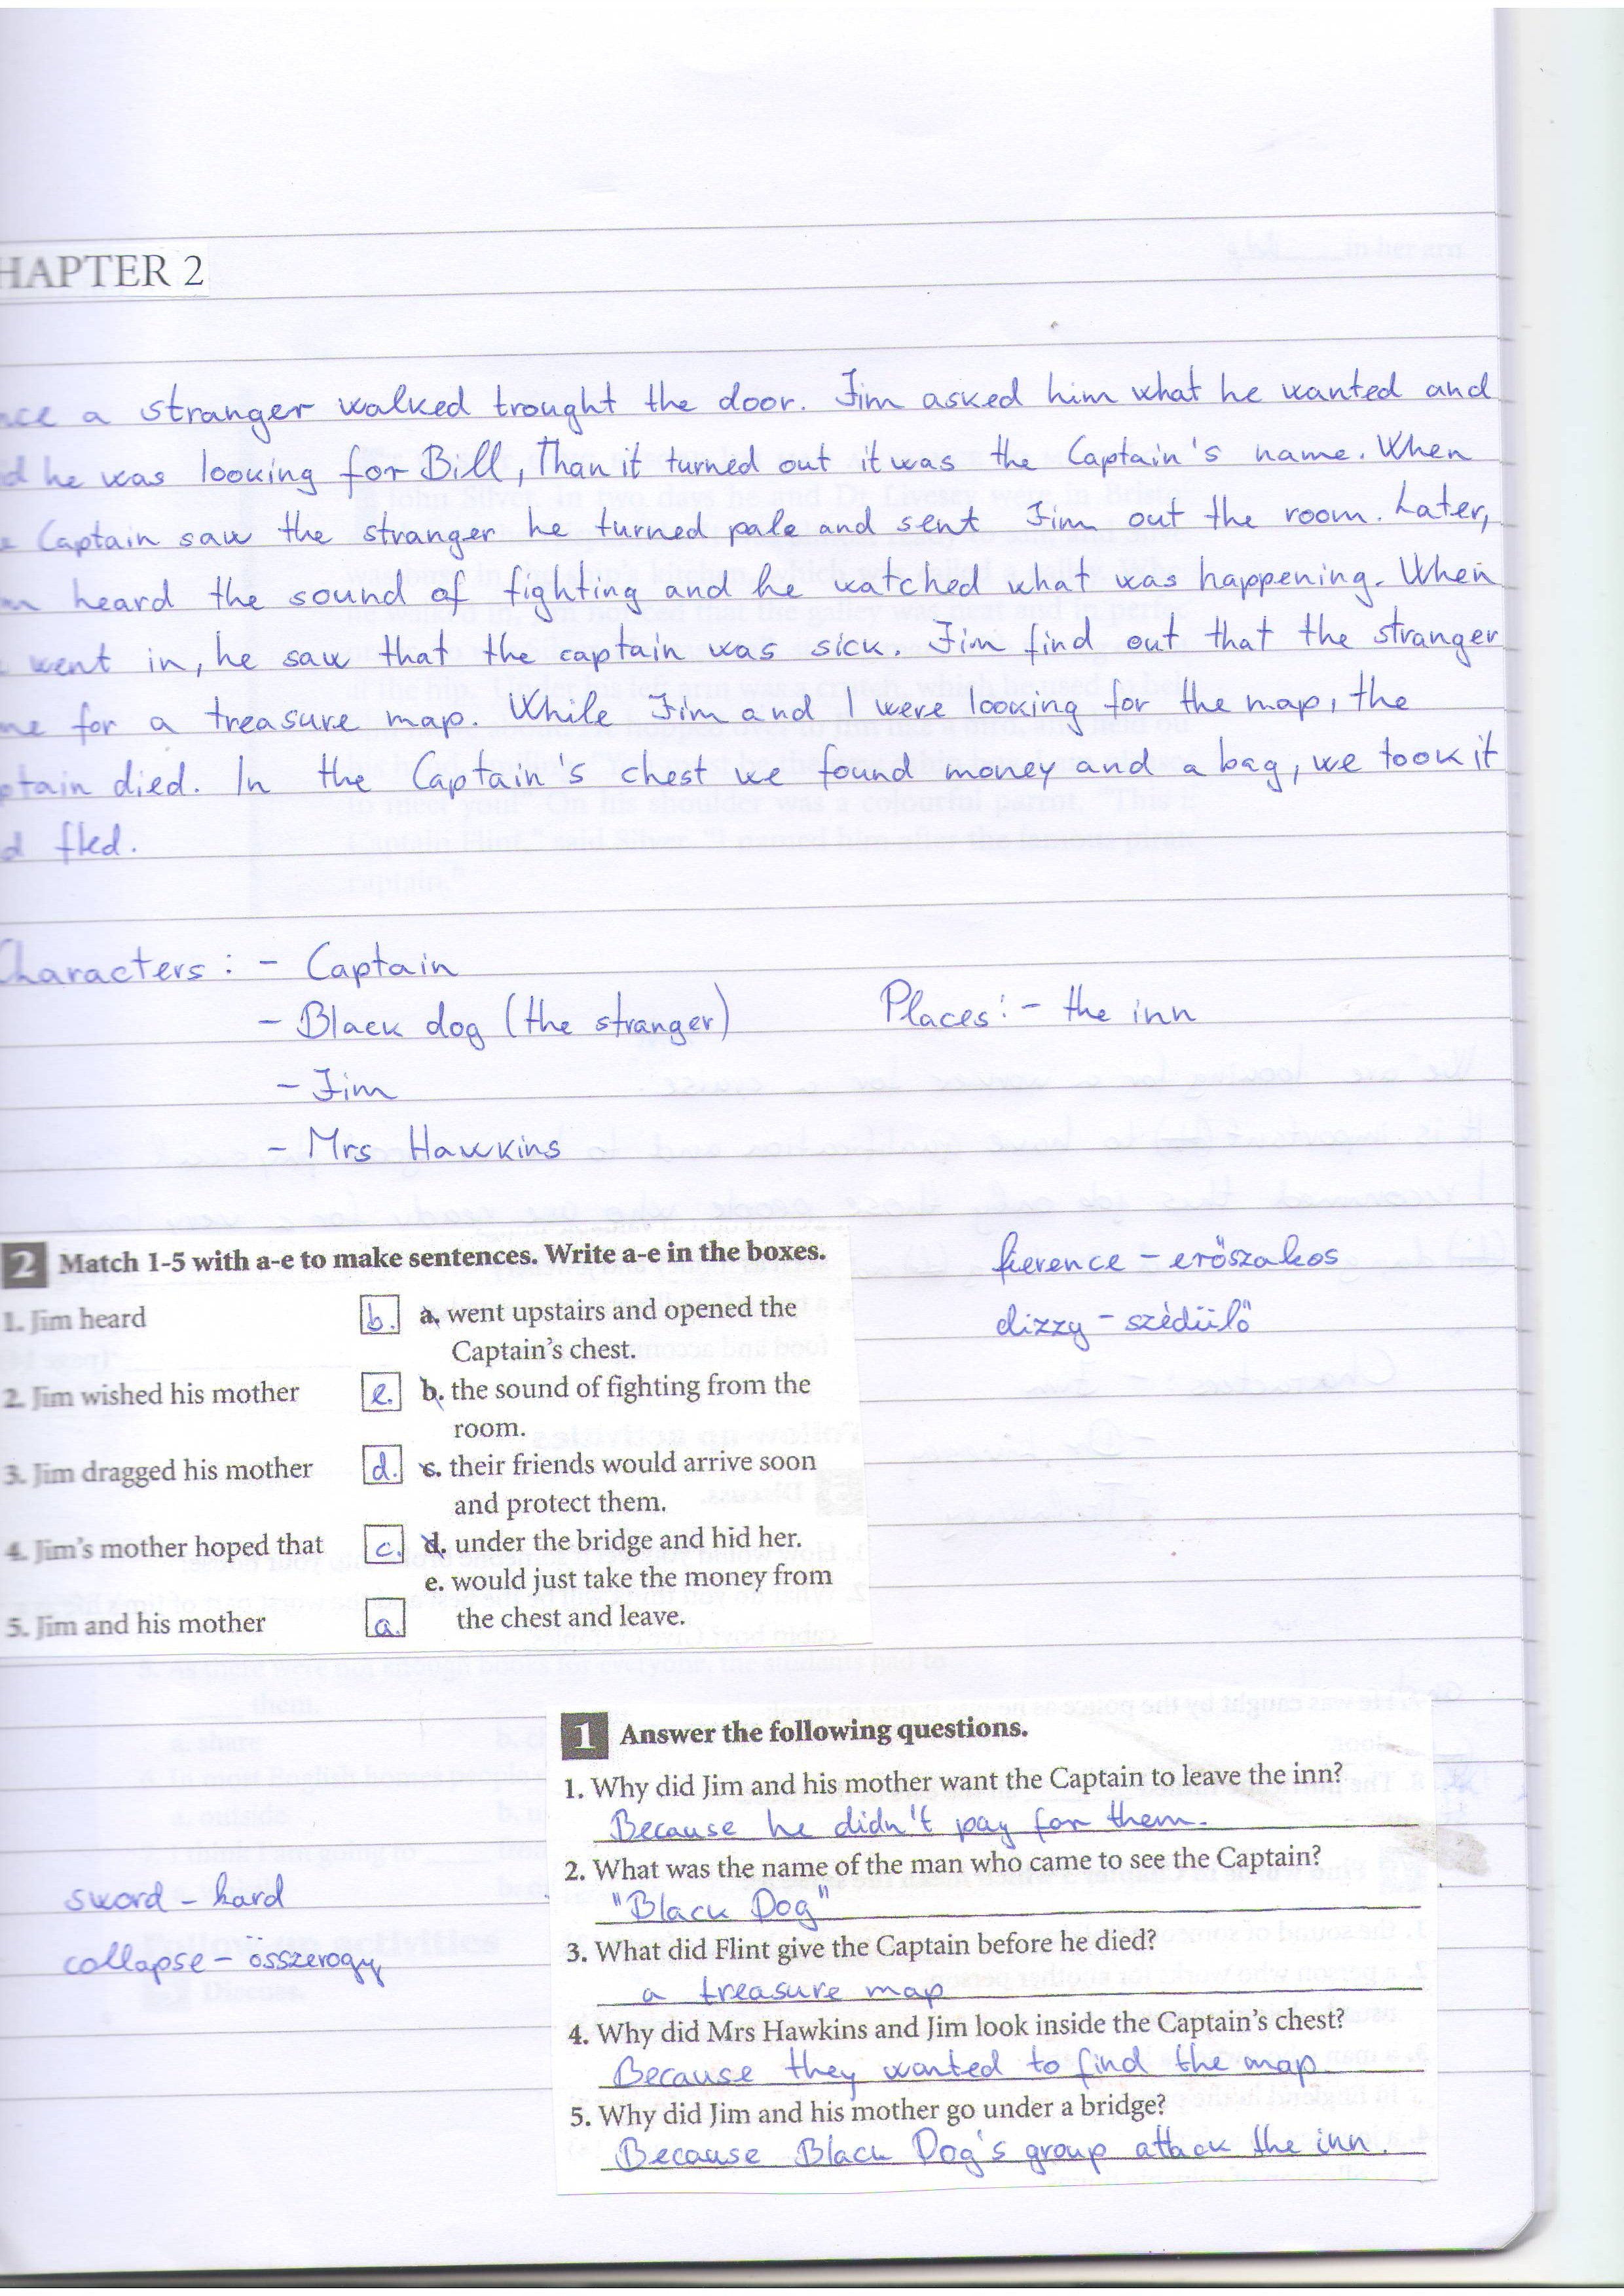 HAPTER 2
nce a stranger walked trought the door. Jim asked him what he wanted and
d he was looking for Bill, Than it turned out it was the Captain's name. When
e Captain saw the stranger he turned pale and sent Jim out the room. Later,
m heard the sound of fighting and he watched what was happening. When
went in, he saw that the captain was sick. Jim find out that the stranger
me for a treasure map. While Jim and I were looking for the map, the
ptain died. In the Captain's chest we found money and a bag, we took it
d fled.
Characters: - Captain
- Black dog (the stranger)
Places: - the inn
- Jim
- Mrs Hawkins
2 Match 1-5 with a-e to make sentences. Write a-e in the boxes.
1. Jim heard b. a. went upstairs and opened the
Captain's chest.
2. Jim wished his mother e. b. the sound of fighting from the
room.
3. Jim dragged his mother d. c. their friends would arrive soon
and protect them.
4. Jim's mother hoped that c. d. under the bridge and hid her.
e. would just take the money from
5. Jim and his mother a. the chest and leave.
fierence - erőszakos
dizzy - szédülő
1 Answer the following questions.
1. Why did Jim and his mother want the Captain to leave the inn?
Because he didn't pay for them.
2. What was the name of the man who came to see the Captain?
"Black Dog"
3. What did Flint give the Captain before he died?
a treasure map
4. Why did Mrs Hawkins and Jim look inside the Captain's chest?
Because they wanted to find the map.
5. Why did Jim and his mother go under a bridge?
Because Black Dog's group attack the inn.
sword - kard
collapse - összerogy